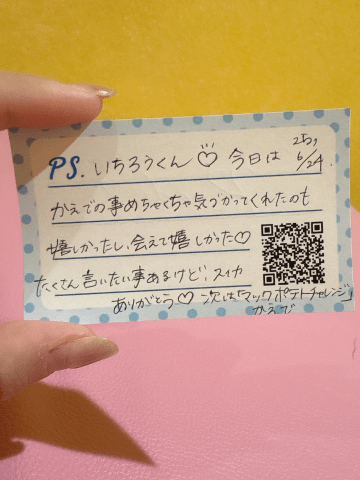 PS. いちろうくん♡ 今日は 25,
6/24.
かえでの事めちゃくちゃ気づかってくれたのも
嬉しかったし、会えて嬉しかった♡
たくさん言いたい事あるけど、スイカ
ありがとう♡ 次は「マックポテトチャレンジ」
かえで